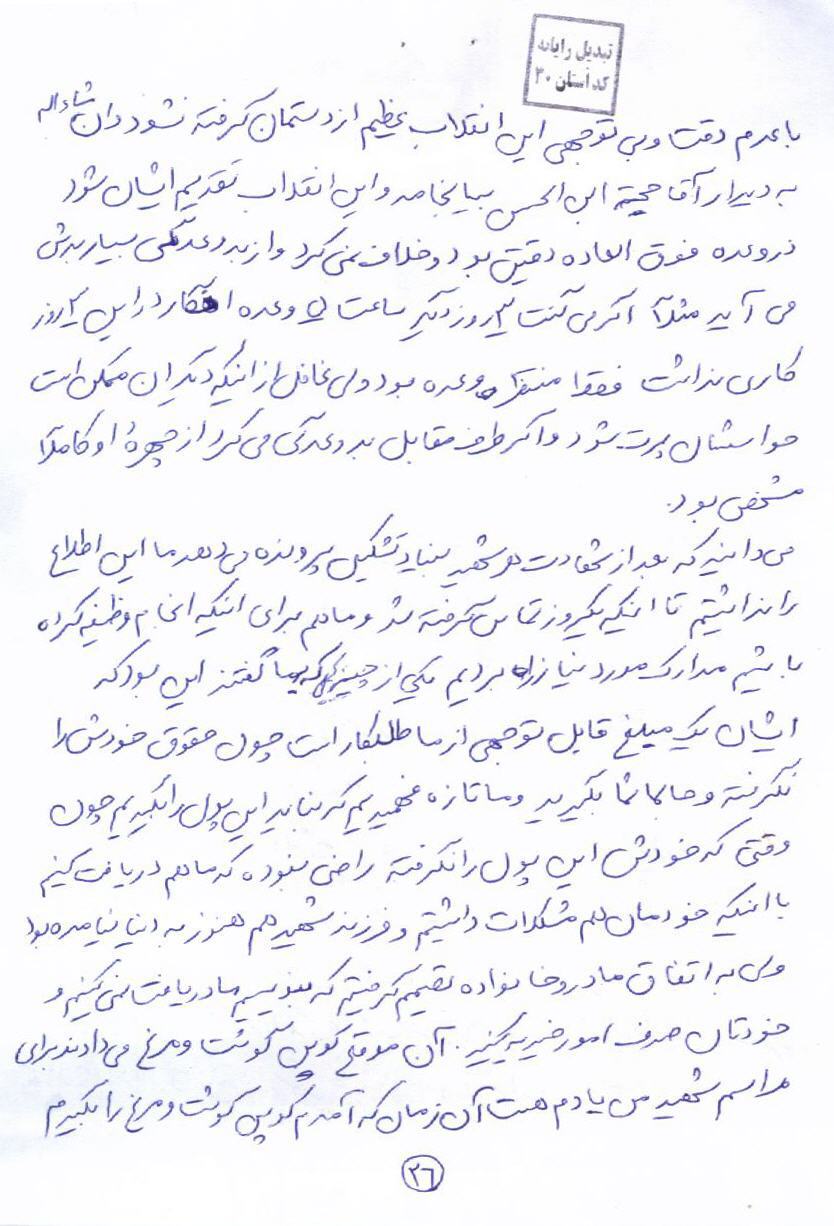 تبدیل رایانه
کد استان ۳۰
با عدم دقت و بی توجهی این انقلاب عظیم از دستمان گرفته نشود و ان شاءاله
به دیدار آقا حجة ابن الحسن بیانجامد و این انقلاب تقدیم ایشان شود
در وعده فوق العاده دقیق بود و خلاف نمی کرد و از بدوعدگی بسیار بدش
می آید مثلاً اگر می گفت ۳ روز دیگر ساعت ۵ وعده در این ۳ روز
کاری نداشت فقط منتظر وعده بود ولی غافل از اینکه دیگران ممکن است
حواسشان پرت شود و اگر طرف مقابل بدوعدگی می کرد از چهرهٔ او کاملاً
مشخص بود.
می دانید که بعد از شهادت هر شهید بنیاد تشکیل پرونده می دهد ما این اطلاع
را نداشتیم تا اینکه یکروز تماس گرفته شد و ما هم برای اینکه انجام وظیفه کرده
باشیم مدارک مورد نیاز را بردیم یکی از چیزهایی که بما گفتند این بود که
ایشان یک مبلغ قابل توجهی از ما طلبکار است چون حقوق خودش را
نگرفته و حالا شما بگیرید و ما تازه فهمیدیم که نباید این پول را بگیریم چون
وقتی که خودش این پول را نگرفته راضی نبوده که ما هم دریافت کنیم
با اینکه خودمان هم مشکلات داشتیم و فرزند شهید هم هنوز به دنیا نیامده بود
ولی به اتفاق مادر و خانواده تصمیم گرفتیم که بنویسیم ما دریافت نمی کنیم و
خودتان صرف امور خیریه کنید. آن موقع کوپن گوشت و مرغ می دادند برای
مراسم شهید من یادم هست آن زمان که آمدم کوپن گوشت و مرغ را بگیرم
۲۶